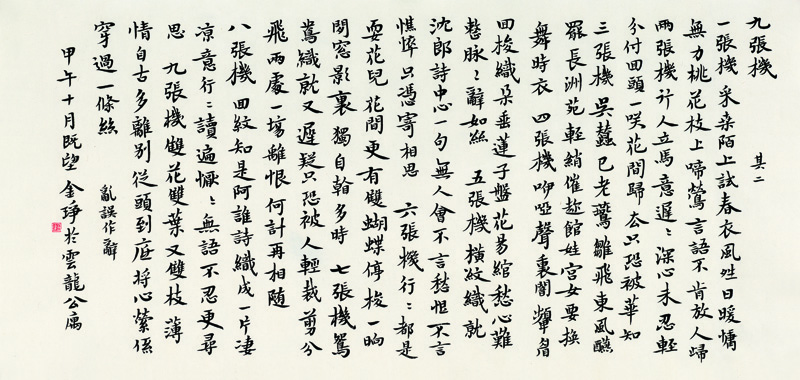 九張機 其二
一張機采桑陌上試春衣風晴日暖慵
無力桃花枝上啼鶯言語不肯放人歸
兩張機行人立馬意遲〻深心未忍輕
分付回頭一笑花間歸去只恐被華知
三張機吳蠶已老鷰雛飛東風讌
罷長洲苑輕綃催趂館娃宮女要換
舞時衣 四張機咿啞聲裏闇顰眉
回梭織朵垂蓮子盤花易綰愁心難
整脉〻辭如絲 五張機橫紋織就
沈郎詩中心一句無人會不言愁恨不言
憔悴只憑寄相思 六張機行〻都是
耍花兒花間更有雙蝴蝶停梭一晌
閒窓影裏獨自看多時 七張機鴛
鴦織就又遲疑只恐被人輕裁剪分
飛兩處一場離恨何計再相隨
八張機回紋知是阿誰詩織成一片淒
涼意行〻讀遍懨〻無語不忍更尋
思 九張機雙花雙葉又雙枝薄
情自古多離別從頭到底將心縈係
穿過一條絲 亂誤作辭
甲午十月既望金琤於雲龍公寓